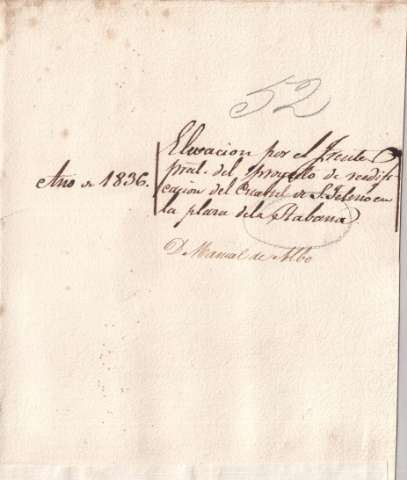 52
Elevacion por el Frente
pral. del proyecto de reedifi-
Año de 1836. cacion del Cuartel de S. Telmo en
la plaza de la Habana
D. Manuel de Albo